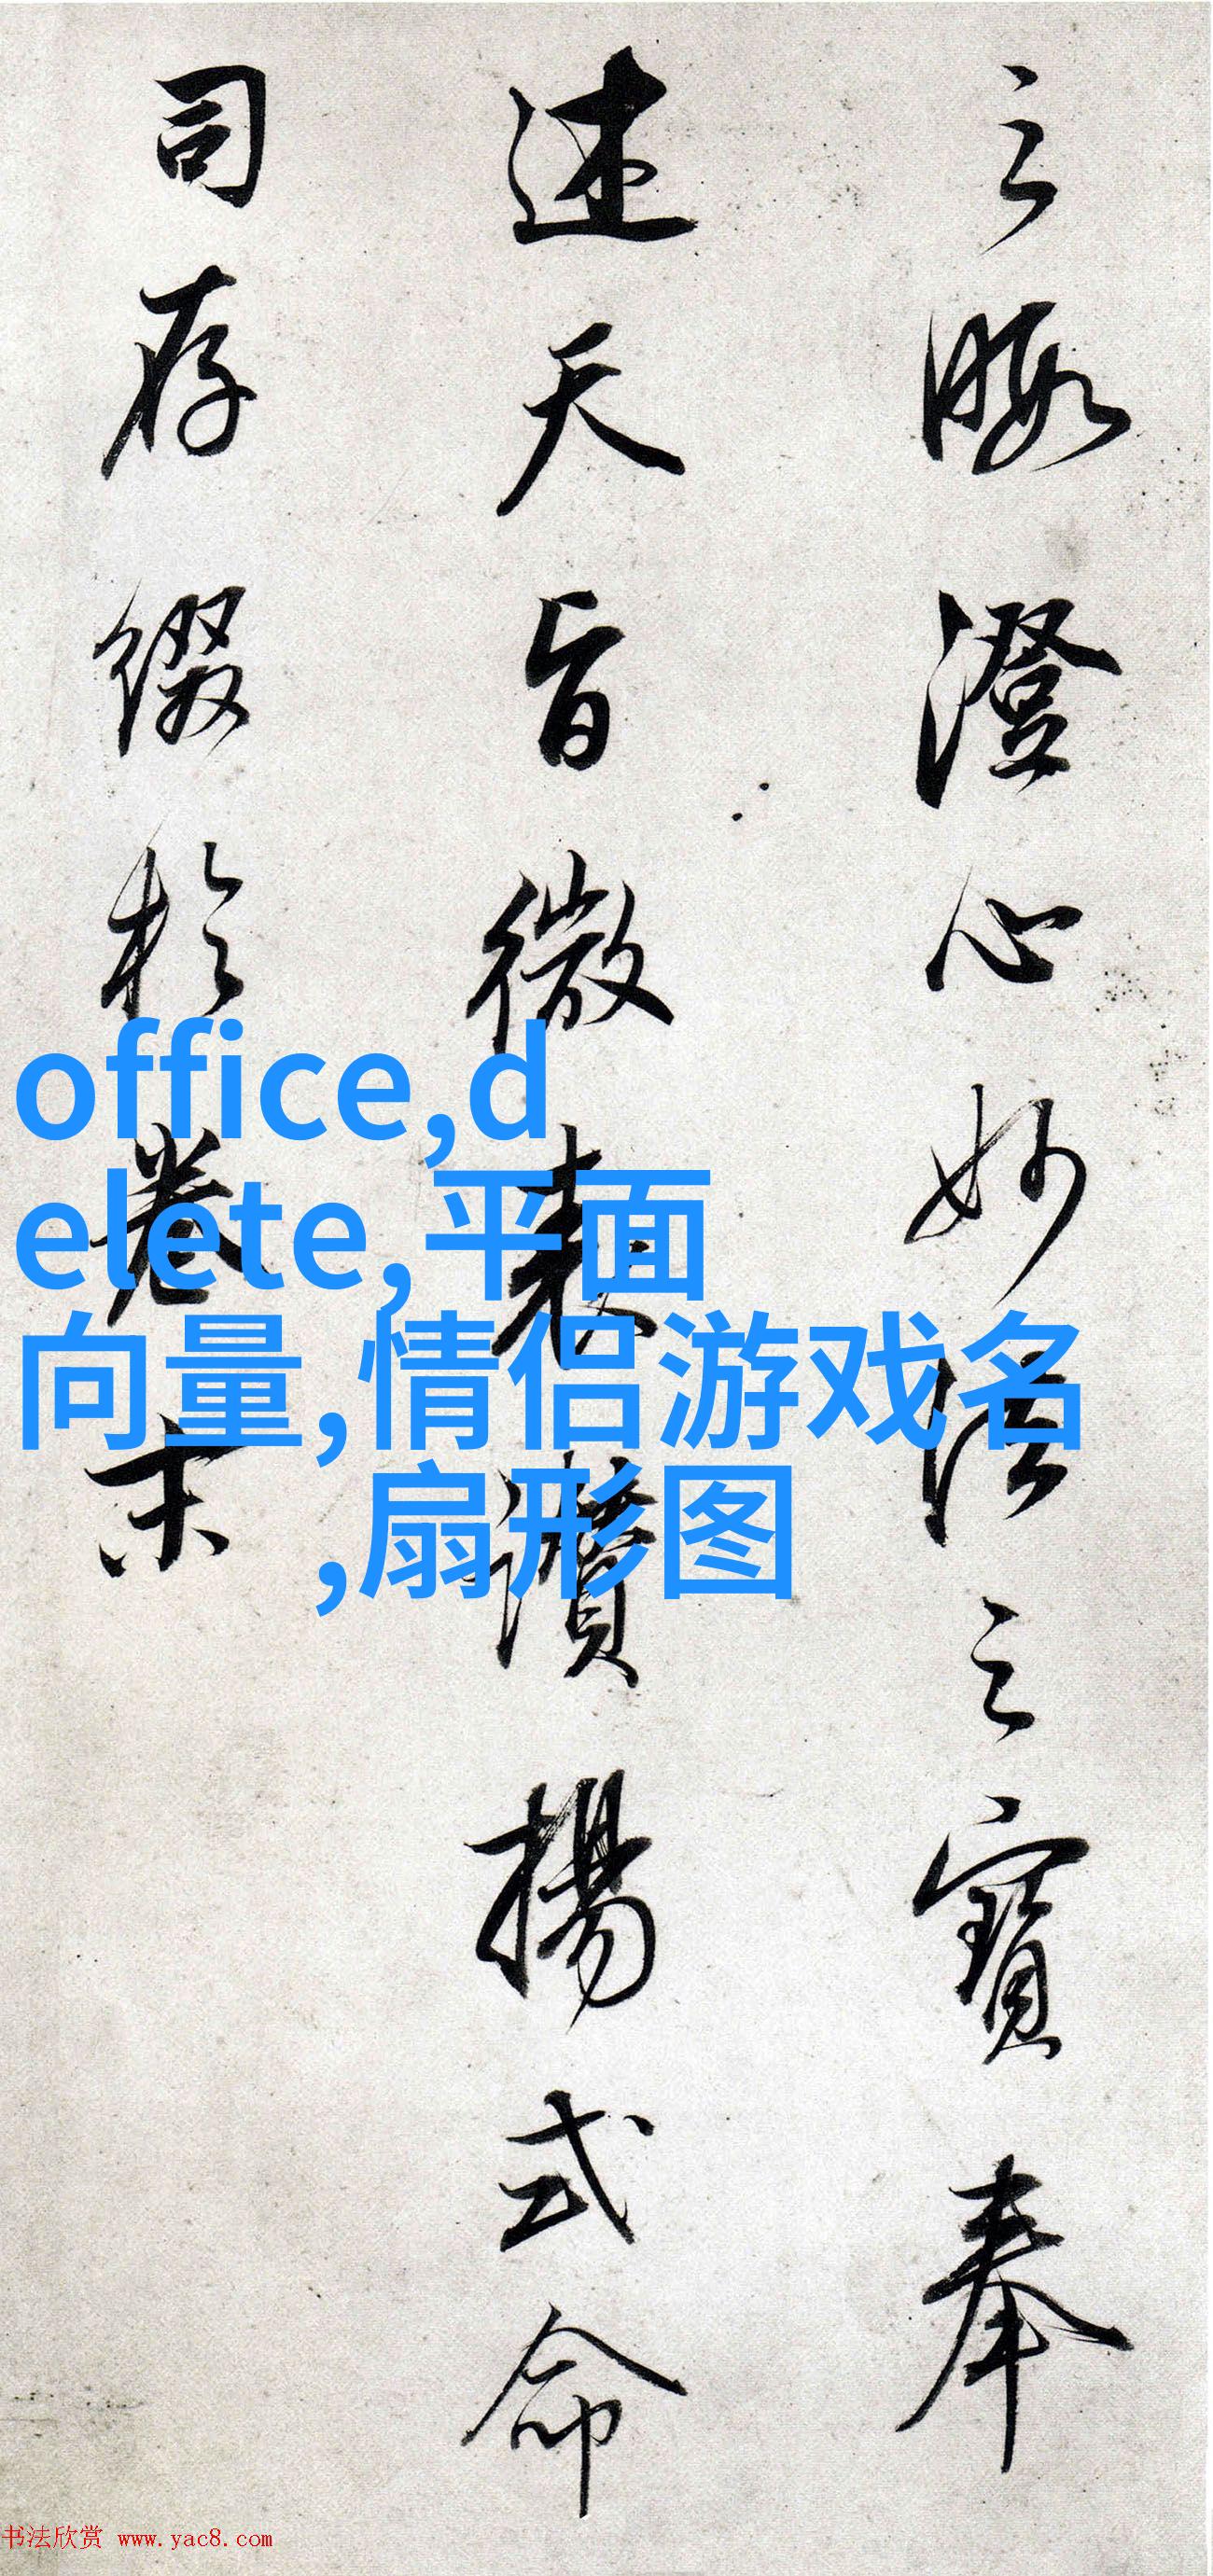 之暇澄心妙法之寶奉
述天旨微表讃揚式命
司存綴於卷末
office,d
elete,平面
向量,情侣游戏名
,扇形图
书法欣赏 www.yac8.com